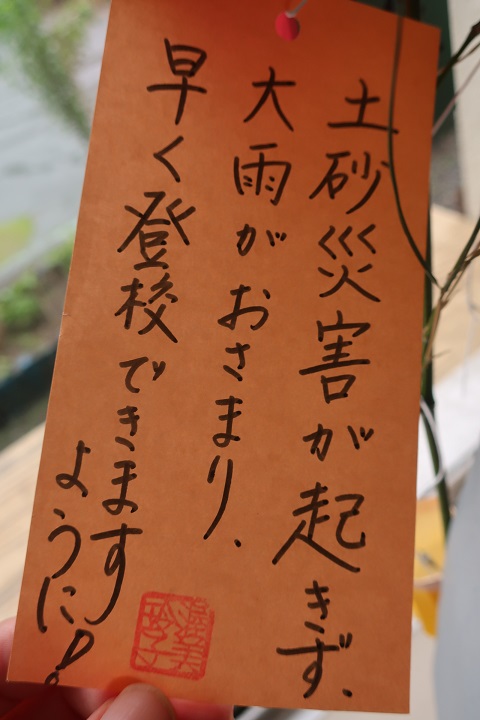 土砂災害が起きず、
大雨がおさまり、
早く登校できます
ように!